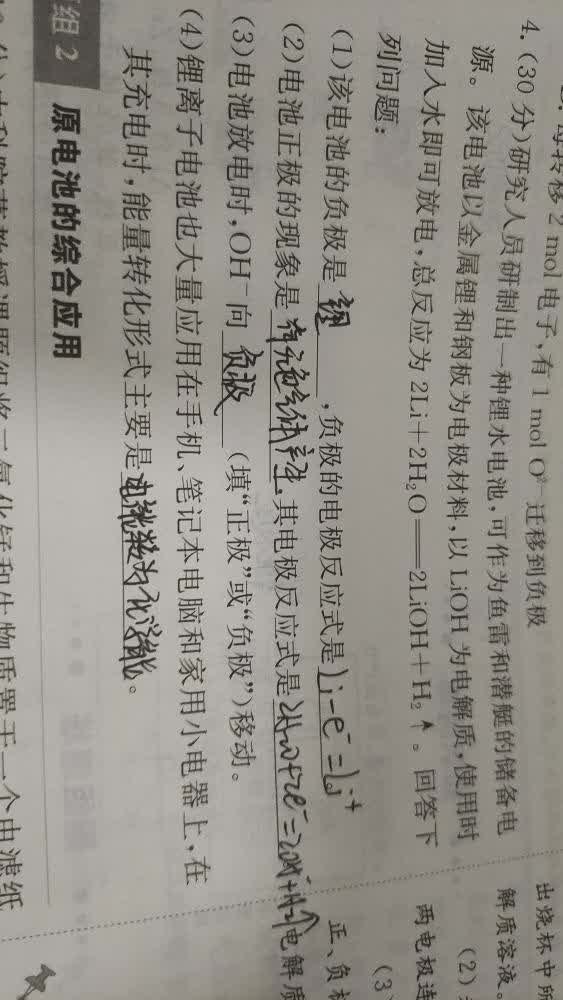 每转移 2 mol 电子，有 1 mol O²⁻ 迁移到负极
4. (30 分)研究人员研制出一种锂水电池，可作为鱼雷和潜艇的储备电
源。该电池以金属锂和钢板为电极材料，以 LiOH 为电解质，使用时
加入水即可放电，总反应为 2Li+2H₂O══2LiOH+H₂↑。回答下
列问题：
(1)该电池的负极是 锂 ，负极的电极反应式是 Li-e⁻=Li⁺
(2)电池正极的现象是 有无色气体产生，其电极反应式是 2H₂O+2e⁻=2OH⁻+H₂↑
(3)电池放电时，OH⁻向 负极 (填“正极”或“负极”)移动。
(4)锂离子电池也大量应用在手机、笔记本电脑和家用小电器上，在
其充电时，能量转化形式主要是 电能转为化学能。
组 2 原电池的综合应用
出烧杯中所
解质溶液
(2)
两电极连
(3)
正、负极
电解质